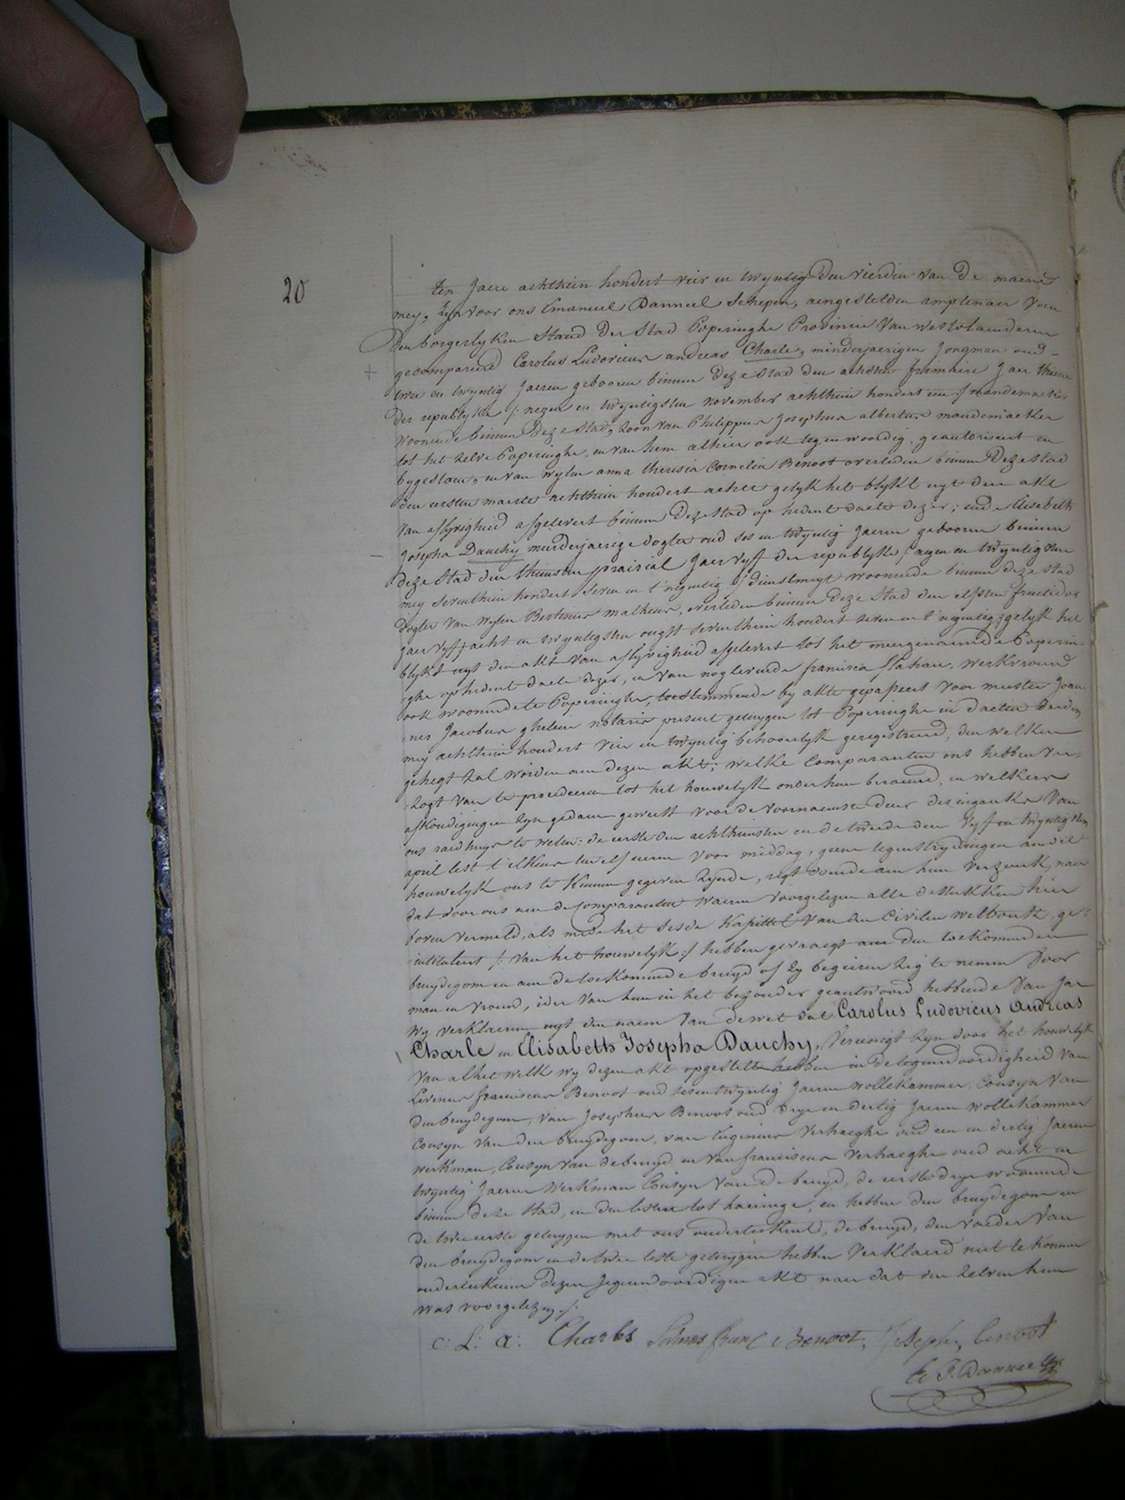 20
Ten Jaere achthien hondert vier en twyntig den vierden van de maend
mey, zyn voor ons Emanuel Danneel Schepen, aengestelden amptenaer van
den borgerlyken Stand der Stad Poperinghe Provincie van westvlaenderen
gecompareerd Carolus Ludovicus andreas Charle, minderjaerigen Jongman oud
twee en twyntig Jaeren gebooren binnen deze Stad den achsten frimaire Jaer thiene
der republyke /: negen en twyntigsten november achthien hondert een :/ mandemaeker
woonende binnen deze Stad, zoon van Philippus Josephus albertus mandemaeker
tot het zelve Poperinghe, en van hem alhier ook tegenwoordig, geautoriseert en
bygestaen, en van wylen anna theresia Cornelia Benoot overleden binnen deze stad
den eersten maerte achthien hondert achte gelyk het blykt uyt den akt
van aflyvigheid afgelevert binnen deze Stad op hedent daete dezer; ende Elisabeth
Josepha Dauchy meerderjaerige dogter oud ses en twyntig Jaeren gebooren binnen
deze Stad den thiensten prairial Jaer vyff der republyke /: negen en twyntigsten
mey seventhien hondert seven en t'negentig :/ dienstmeyt woonende binnen deze stad
dogter van wylen malheus, overleden binnen deze Stad den elfsten fructidor
jaer vyff /: acht en twyntigsten ougst seventhien hondert seven en t'negentig :/ gelyk het
blykt uyt den akt van aflyvigheid afgelevert tot het meergenoemde Poperin-
ghe op hedent daete dezer, en van nog levende francisca werkvrouw
ook woonende te Poperinghe, toestemmende by akte gepasseert voor meester Joan-
nes Jacobus ghelein notaris present getuygen tot Poperinghe in daeten derden
mey achthien hondert vier en twyntig behoorlyk geregistreerd, den welken
gehegt zal worden aen dezen akt; welke Comparanten ons hebben ver-
zogt van te procederen tot het houwelyk onder hun beraemd, en welkers
afkondigingen zyn gedaen geweest voor de voornaemste deur des ingank van
ons raedhuys te weten: de eerste den achthiensten en de tweede den vyff en twyntigsten
april lest t'elkens ten elf uren voor middag, geene tegenstrydingen aen dit
houwelyk ons te kennen gegeven zynde, regt doende aen hun verzoek, naer
dat door ons aen de Comparanten waeren voorgelezen alle de stukken hier
boven vermeld, als mede het sesde kapittel van den Civilen wetboek, ge-
intituleert /: van het houwelyk :/ hebben gevraegt aen den toekomenden
bruydegom en aen de toekomende bruyd of zy begeiren zig te nemen voor
man en vrouw, ider van hun in het bezonder geantwoord hebbende van Ja
wy verklaeren uyt den naem van de wet dat Carolus Ludovicus Andreas
Charle en Elisabeth Josepha Dauchy, vereenigt zyn door het houwelyk
van al het welk wy dezen akt opgestelt hebben in de tegenwoordigheid van
Livinus franciscus Benoot oud Jaeren wollekammer, Cousyn van
den bruydegom, van Josephus Benoot oud drye en dertig Jaeren wollekammer
Cousyn van den bruydegom, van Eugenius Verhaeghe oud een en dertig Jaeren
werkman, Cousyn van de bruyd en van franciscus Verhaeghe oud acht en
twyntig Jaeren werkman Cousyn van de bruyd, de eerste drye woonende
binnen deze stad, en den lesten tot haeringe, en hebben den bruydegom en
de twee eerste getuygen met ons onderteekend, de bruyd, den vaeder van
den bruydegom en de twee leste getuygen hebben verklaerd niet te konnen
onderteekenen dezen tegenwoordigen akt naer dat den zelven hun
was voorgelezen /.
C: L: A: Charles Livinus franc Benoot, Joseph, benoot
E. J. Danneel